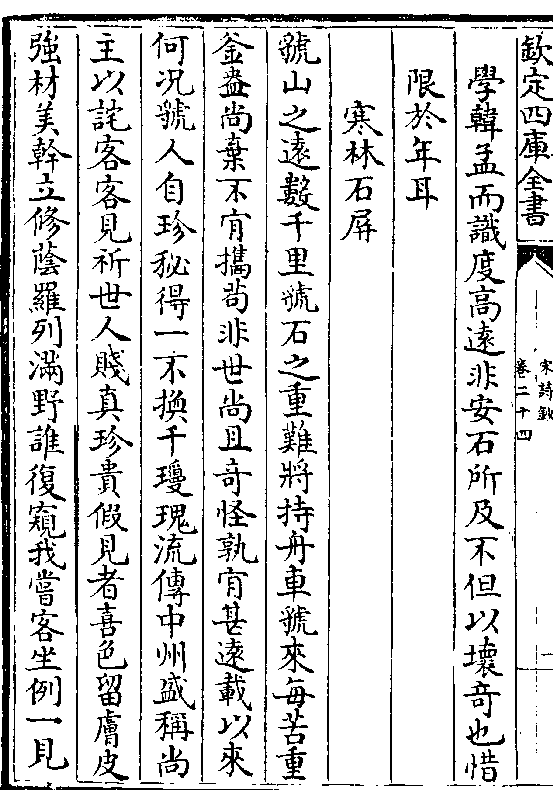 欽定四庫全書
宋詩鈔
卷二十四
學韓孟而識度高遠非安石所及不但以壞奇也惜
限於年耳
寒林石屏
虢山之遠數千里虢石之重難將持舟車虢來每苦重
釜盎尚棄不肎攜茍非世尚且奇怪孰肎甚遠載以來
何况虢人自珍秘得一不換千瓊瑰流傳中州盛稱尚
主以詫客客見祈世人賤真珍貴假見者喜色留膚皮
強材美幹立修蔭羅列滿野誰復窺我嘗客坐例一見